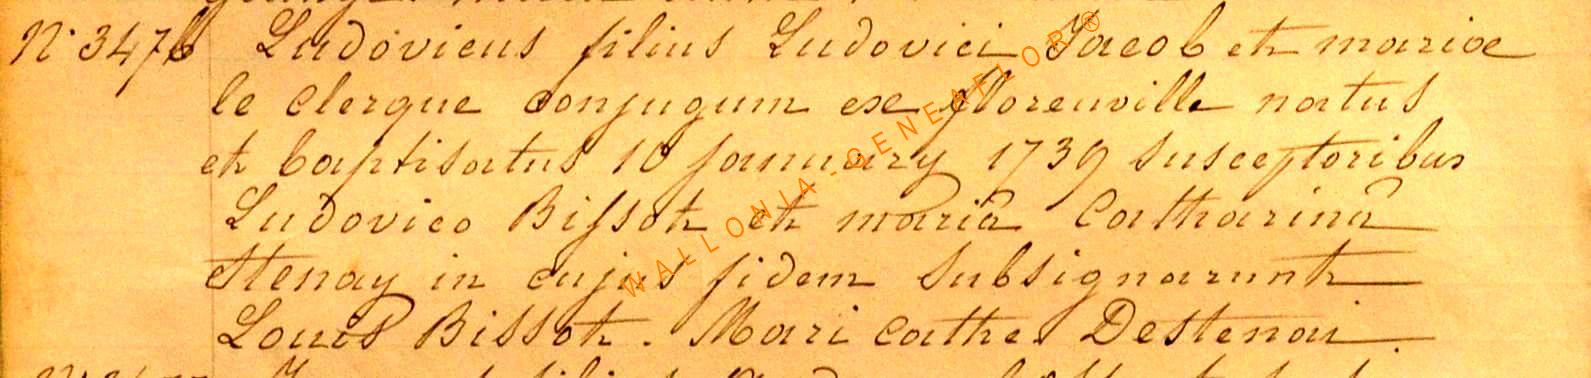 N° 3476 Ludovicus filius Ludovici Jacob et mariae
le Clerque conjugum ex florenville natus
et baptisatus 10 January 1739 susceptoribus
Ludovico Bissot et mariâ Catharinâ
Stenay in cujus fidem subsignarunt
Louis Bissot. Mari Cathe Destenai
WALLONIA-GENEAFLOR®